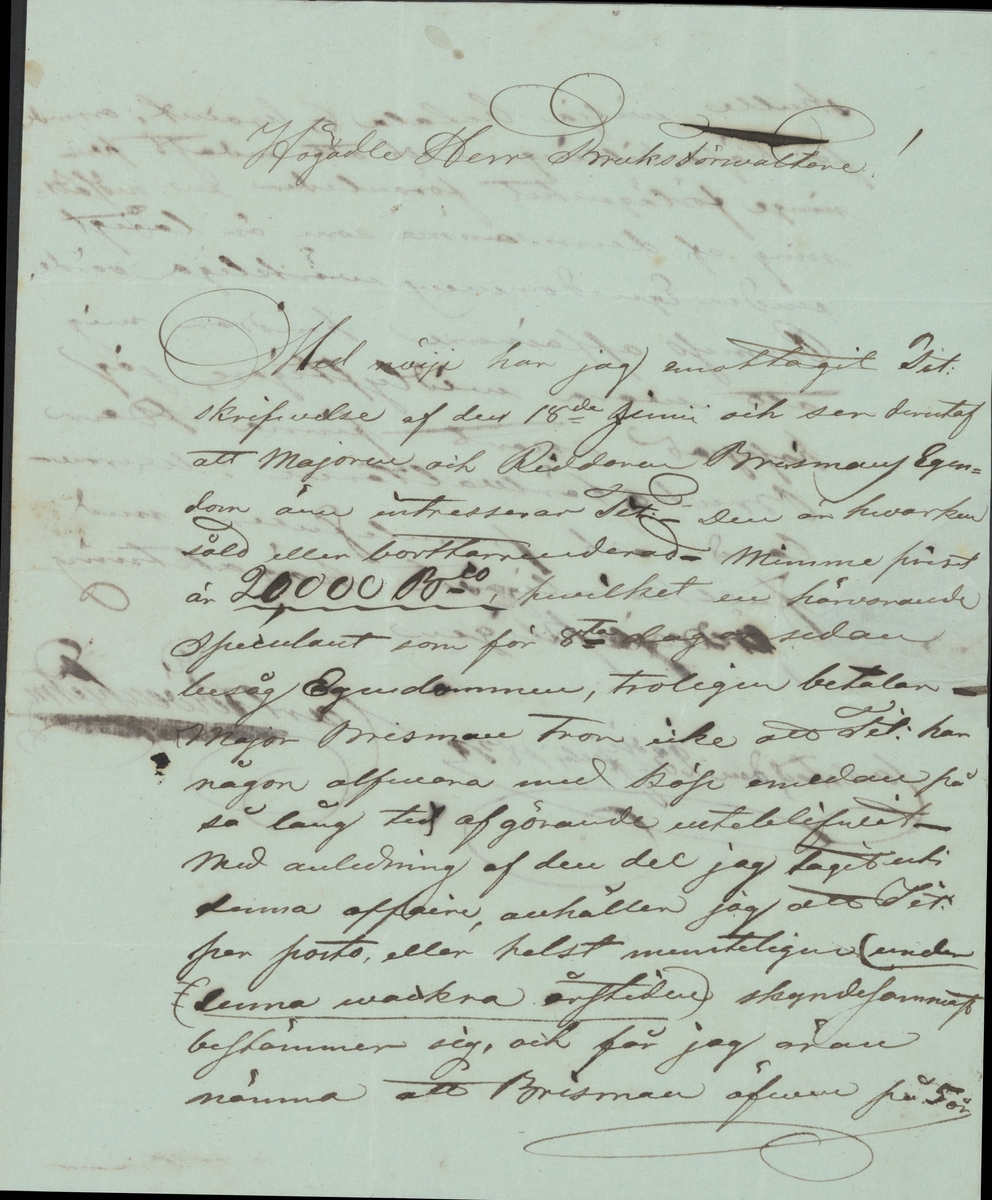 Högädle Herr Bruksförwaltare!
Med nöije har jag emottagit Tit:
skrifwelse af den 18de Junii och ser deruttaf
att Majoren och Riddaren Brismans Egen=
dom än intresserar Tit:– Den är hwarken
såld eller bortarrenderad– Minnme priset
är 20,000 Bco, hwilket en härwarande
Speculant som för 8ta dagar sedan
besåg Egendommen, troligen betalar –
Major Brisman tror icke att Tit: har
någon alfwara med köp emedan på
så lång tid afgörande uteblifwit–
Med anledning af den del jag tagit uti
denna affaire, anhåller jag att Tit:
per posto, eller helst munteligen (under
(denna wackra årstiden) skyndesammast
bestämmer sig, och får jag äran
nämna att Brisman äfwen på 5 år